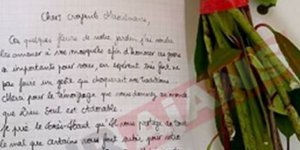 Chers croyants Musulmans,
Ces quelques fleurs de notre jardin, j'ai voulu
les amener à vos mosquées afin d'honorer ces jours
si importants pour vous, en espérant
pas faire un geste qui choquerait vos traditions
Merci pour le témoignage que vous donnez au monde
que Dieu Seul est Adorable.
Je prie le Tout-Puissant qu'Il vous protège de tous
le mal que certains vous font subir pour votre